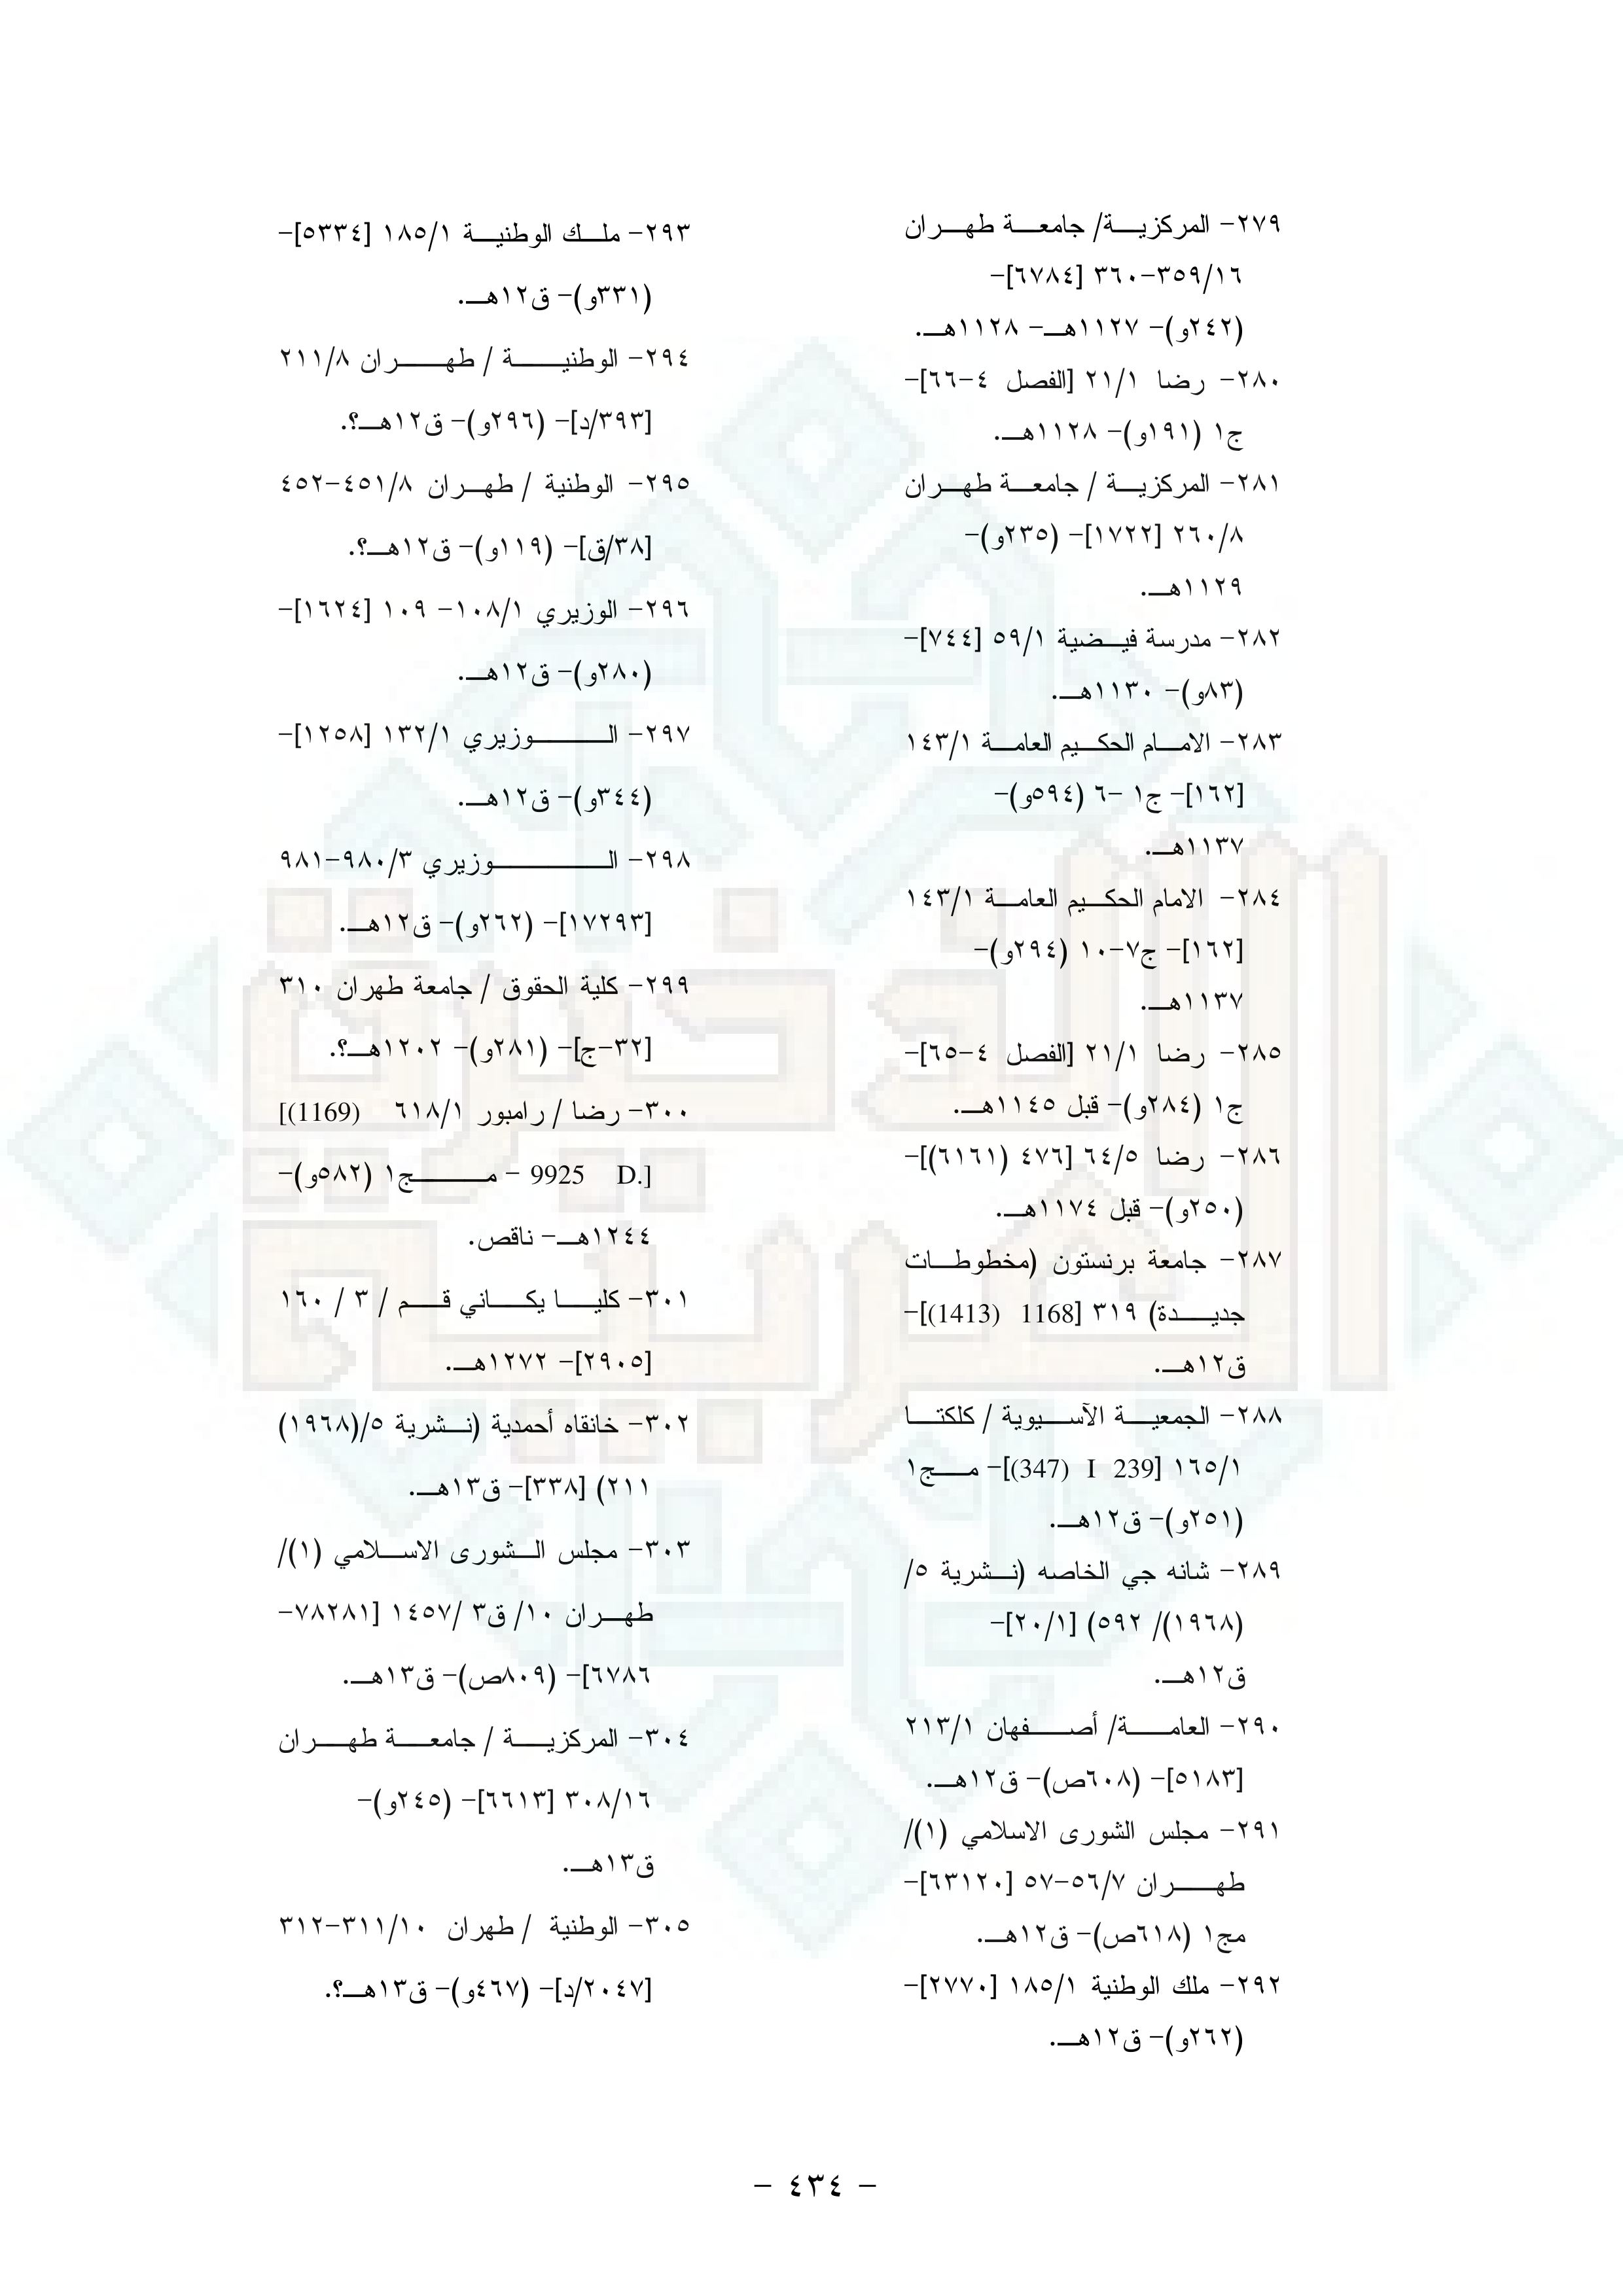 ٢٧٩- المركزية/ جامعة طهران
٣٥٩/١٦-٣٦٠ [٦٧٨٤]-
(٢٤٢و)- ١١٢٧هـ- ١١٢٨هـ.
٢٨٠- رضا ٢١/١ [الفصل ٤-٦٦]-
ج١ (١٩١و)- ١١٢٨هـ.
٢٨١- المركزية / جامعة طهران
٢٦٠/٨ [١٧٢٢]- (٢٣٥و)-
١١٢٩هـ.
٢٨٢- مدرسة فيضية ٥٩/١ [٧٤٤]-
(٨٣و)- ١١٣٠هـ.
٢٨٣- الامام الحكيم العامة ١٤٣/١
[١٦٢]- ج١ -٦ (٥٩٤و)-
١١٣٧هـ.
٢٨٤- الامام الحكيم العامة ١٤٣/١
[١٦٢]- ج٧-١٠ (٢٩٤و)-
١١٣٧هـ.
٢٨٥- رضا ٢١/١ [الفصل ٤-٦٥]-
ج١ (٢٨٤و)- قبل ١١٤٥هـ.
٢٨٦- رضا ٦٤/٥ [٤٧٦ (٦١٦١)]-
(٢٥٠و)- قبل ١١٧٤هـ.
٢٨٧- جامعة برنستون (مخطوطات
جديدة) ٣١٩ [1168 (1413)]-
ق١٢هـ.
٢٨٨- الجمعية الآسيوية / كلكتا
١٦٥/١ [239 I (347)]- مج١
(٢٥١و)- ق١٢هـ.
٢٨٩- شانه جي الخاصه (نشرية ٥/
(١٩٦٨)/ ٥٩٢) [٢٠/١]-
ق١٢هـ.
٢٩٠- العامة/ أصفهان ٢١٣/١
[٥١٨٣]- (٦٠٨ص)- ق١٢هـ.
٢٩١- مجلس الشورى الاسلامي (١)/
طهران ٥٦/٧-٥٧ [٦٣١٢٠]-
مج١ (٦١٨ص)- ق١٢هـ.
٢٩٢- ملك الوطنية ١٨٥/١ [٢٧٧٠]-
(٢٦٢و)- ق١٢هـ.
٢٩٣- ملك الوطنية ١٨٥/١ [٥٣٣٤]-
(٣٣١و)- ق١٢هـ.
٢٩٤- الوطنية / طهران ٢١١/٨
[٣٩٣/د]- (٢٩٦و)- ق١٢هـ؟.
٢٩٥- الوطنية / طهران ٤٥١/٨-٤٥٢
[٣٨/ق]- (١١٩و)- ق١٢هـ؟.
٢٩٦- الوزيري ١٠٨/١- ١٠٩ [١٦٢٤]-
(٢٨٠و)- ق١٢هـ.
٢٩٧- الوزيري ١٣٢/١ [١٢٥٨]-
(٣٤٤و)- ق١٢هـ.
٢٩٨- الوزيري ٩٨٠/٣-٩٨١
[١٧٢٩٣]- (٢٦٢و)- ق١٢هـ.
٢٩٩- كلية الحقوق / جامعة طهران ٣١٠
[٣٢-ج]- (٢٨١و)- ١٢٠٢هـ؟.
٣٠٠- رضا / رامبور ٦١٨/١ [(1169)
9925 D.]- مج١ (٥٨٢و)-
١٢٤٤هـ- ناقص.
٣٠١- كليا يكاني قم / ٣ / ١٦٠
[٢٩٠٥]- ١٢٧٢هـ.
٣٠٢- خانقاه أحمدية (نشرية ٥/(١٩٦٨)
٢١١) [٣٣٨]- ق١٣هـ.
٣٠٣- مجلس الشورى الاسلامي (١)/
طهران ١٠/ ق٣ /١٤٥٧ [٧٨٢٨١-
٦٧٨٦]- (٨٠٩ص)- ق١٣هـ.
٣٠٤- المركزية / جامعة طهران
٣٠٨/١٦ [٦٦١٣]- (٢٤٥و)-
ق١٣هـ.
٣٠٥- الوطنية / طهران ٣١١/١٠-٣١٢
[٢٠٤٧/د]- (٤٦٧و)- ق١٣هـ؟.
- ٤٣٤ -